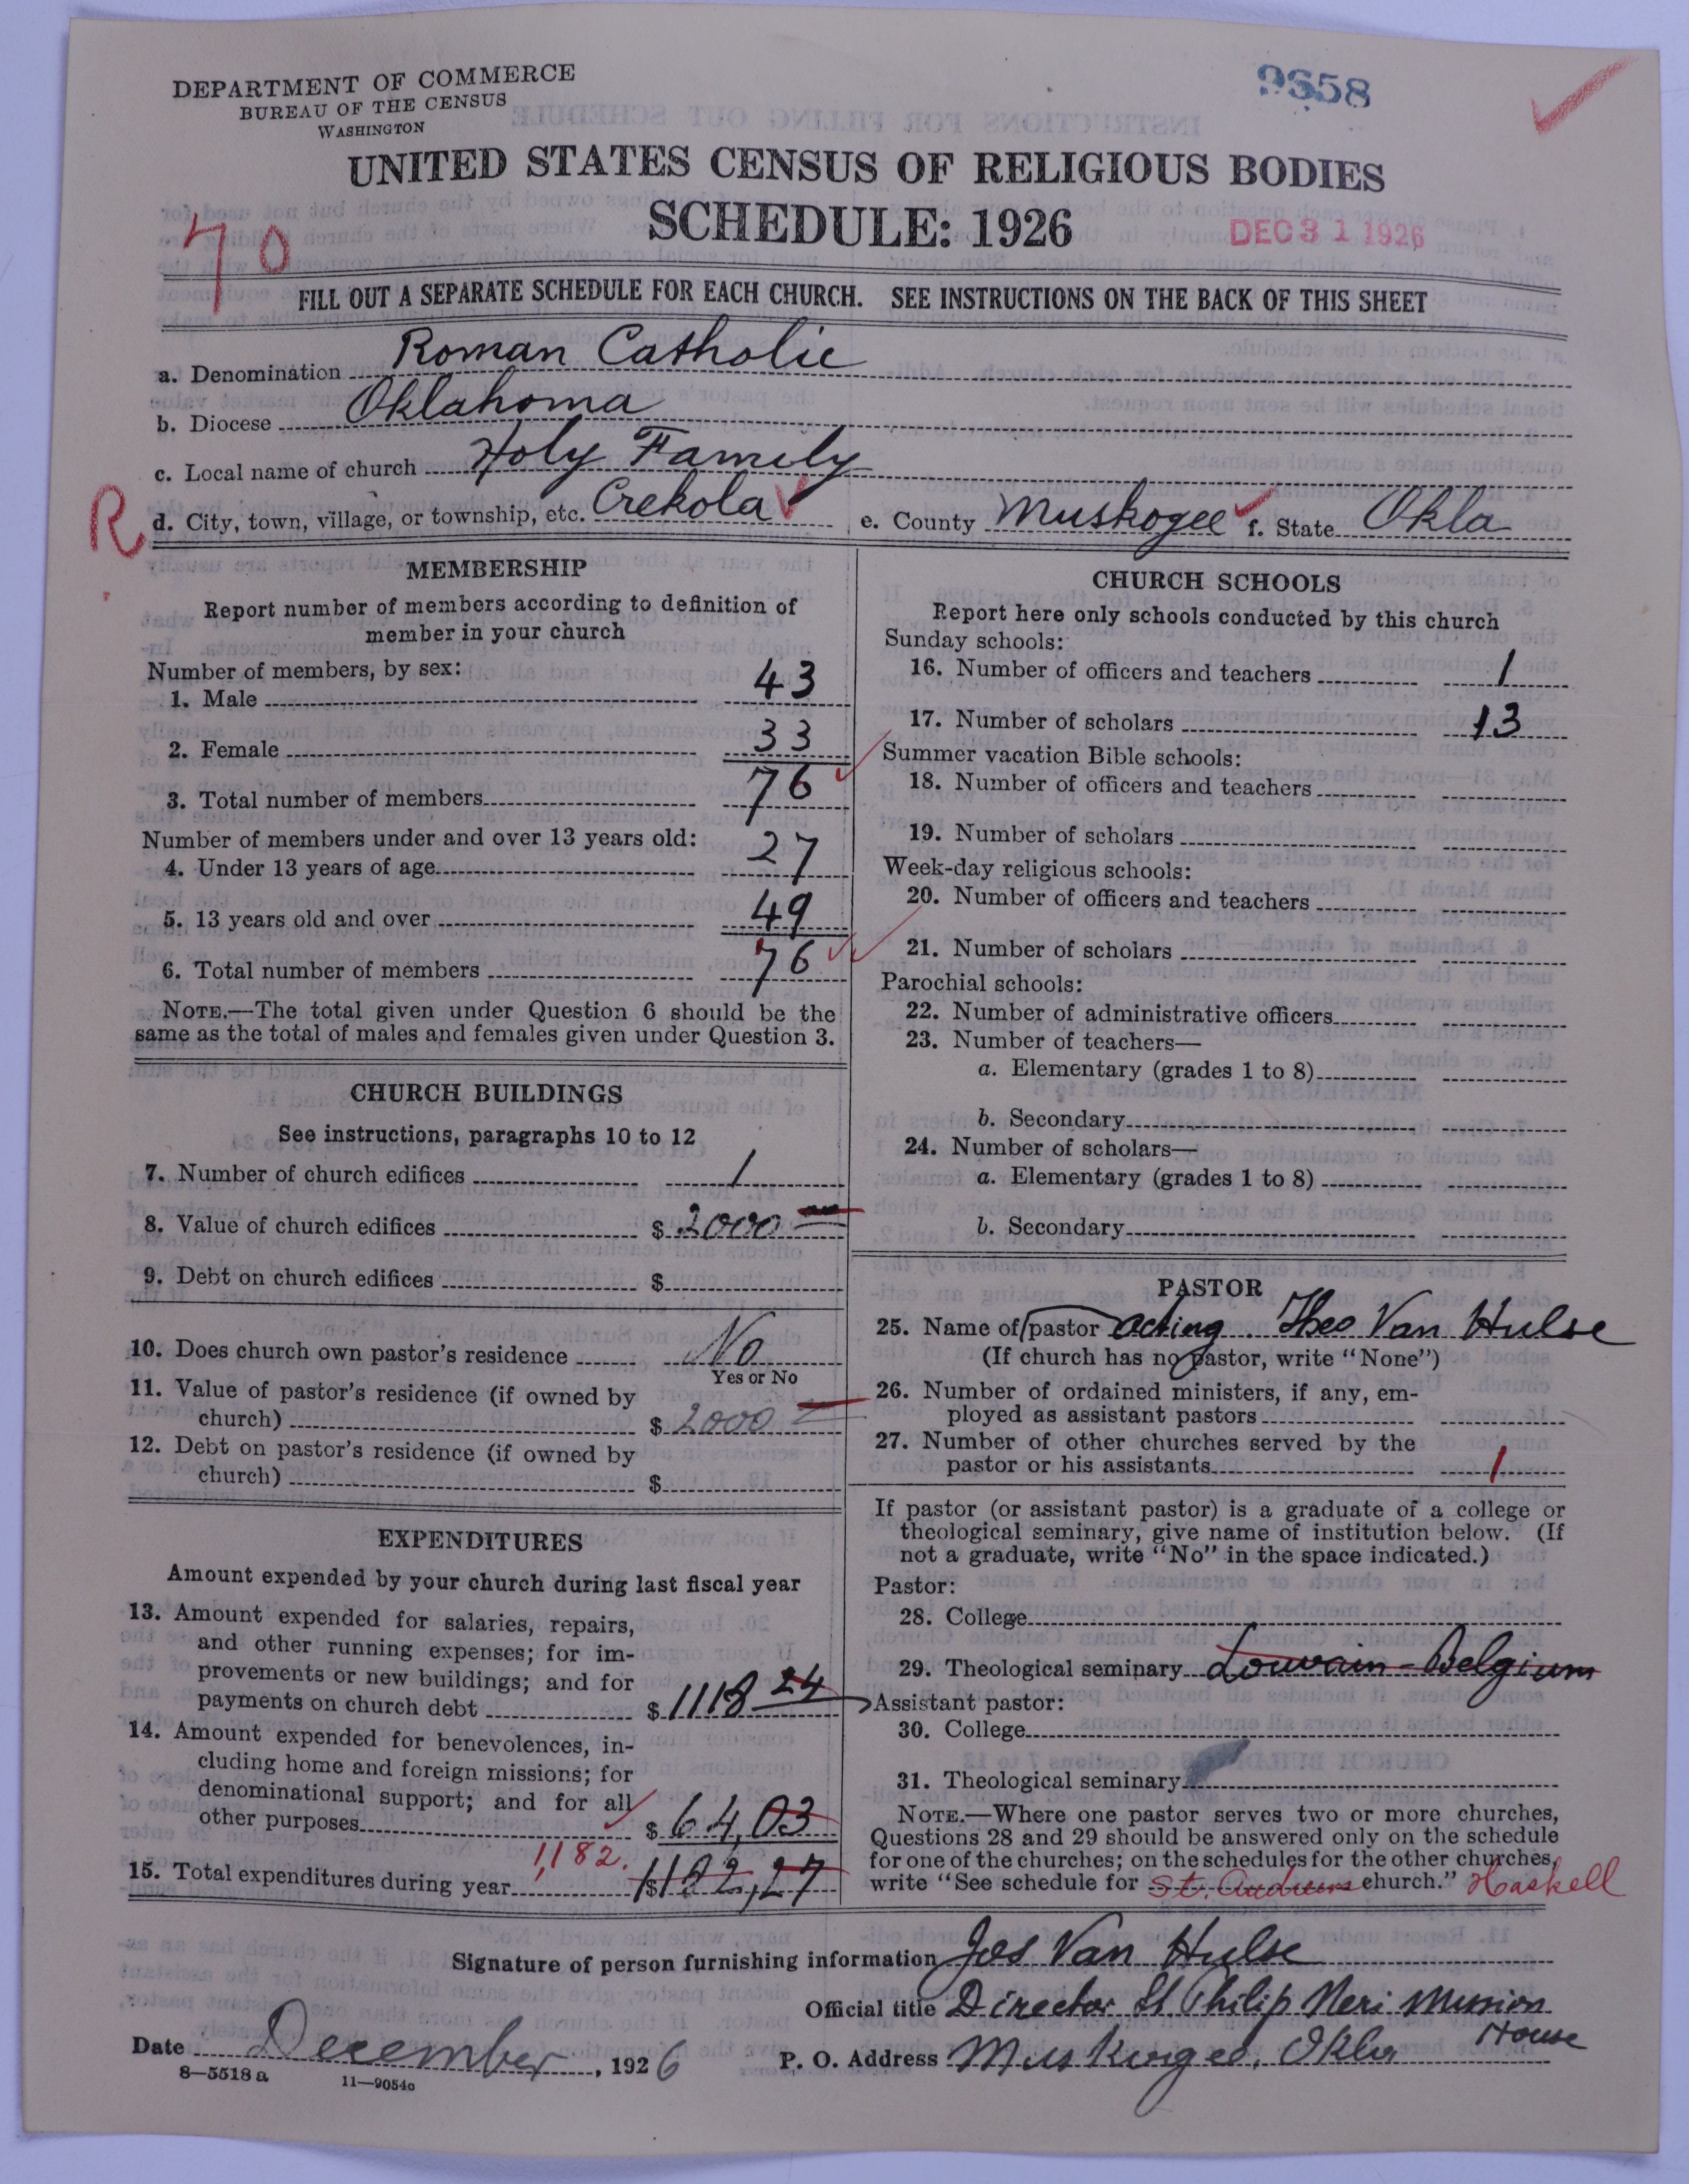 DEPARTMENT OF COMMERCE
BUREAU OF THE CENSUS
WASHINGTON
9658
UNITED STATES CENSUS OF RELIGIOUS BODIES
SCHEDULE: 1926
DEC 31 1926
40
FILL OUT A SEPARATE SCHEDULE FOR EACH CHURCH. SEE INSTRUCTIONS ON THE BACK OF THIS SHEET
a. Denomination Roman Catholic
b. Diocese Oklahoma
c. Local name of church Holy Family
R d. City, town, village, or township, etc. Crekola e. County Muskogee f. State Okla
MEMBERSHIP
Report number of members according to definition of
member in your church
Number of members, by sex:
1. Male 43
2. Female 33
3. Total number of members 76
Number of members under and over 13 years old:
4. Under 13 years of age 27
5. 13 years old and over 49
6. Total number of members 76
NOTE.—The total given under Question 6 should be the
same as the total of males and females given under Question 3.
CHURCH BUILDINGS
See instructions, paragraphs 10 to 12
7. Number of church edifices 1
8. Value of church edifices $ 2000
9. Debt on church edifices $
10. Does church own pastor's residence No
Yes or No
11. Value of pastor's residence (if owned by
church) $ 2000
12. Debt on pastor's residence (if owned by
church) $
EXPENDITURES
Amount expended by your church during last fiscal year
13. Amount expended for salaries, repairs,
and other running expenses; for im-
provements or new buildings; and for
payments on church debt $ 1118 24
14. Amount expended for benevolences, in-
cluding home and foreign missions; for
denominational support; and for all
other purposes $ 64,03
1,182.
15. Total expenditures during year $ 1182,27
CHURCH SCHOOLS
Report here only schools conducted by this church
Sunday schools:
16. Number of officers and teachers 1
17. Number of scholars 13
Summer vacation Bible schools:
18. Number of officers and teachers
19. Number of scholars
Week-day religious schools:
20. Number of officers and teachers
21. Number of scholars
Parochial schools:
22. Number of administrative officers
23. Number of teachers—
a. Elementary (grades 1 to 8)
b. Secondary
24. Number of scholars—
a. Elementary (grades 1 to 8)
b. Secondary
PASTOR
25. Name of pastor acting Theo Van Hulse
(If church has no pastor, write "None")
26. Number of ordained ministers, if any, em-
ployed as assistant pastors
27. Number of other churches served by the
pastor or his assistants 1
If pastor (or assistant pastor) is a graduate of a college or
theological seminary, give name of institution below. (If
not a graduate, write "No" in the space indicated.)
Pastor:
28. College
29. Theological seminary Louvain - Belgium
Assistant pastor:
30. College
31. Theological seminary
NOTE.—Where one pastor serves two or more churches,
Questions 28 and 29 should be answered only on the schedule
for one of the churches; on the schedules for the other churches,
write "See schedule for St. Andrews church." Haskell
Signature of person furnishing information Jos Van Hulse
Official title Director St Philip Neri Mission
House
Date December, 1926 P. O. Address Muskogee, Okla
8—5518 a 11—9054c